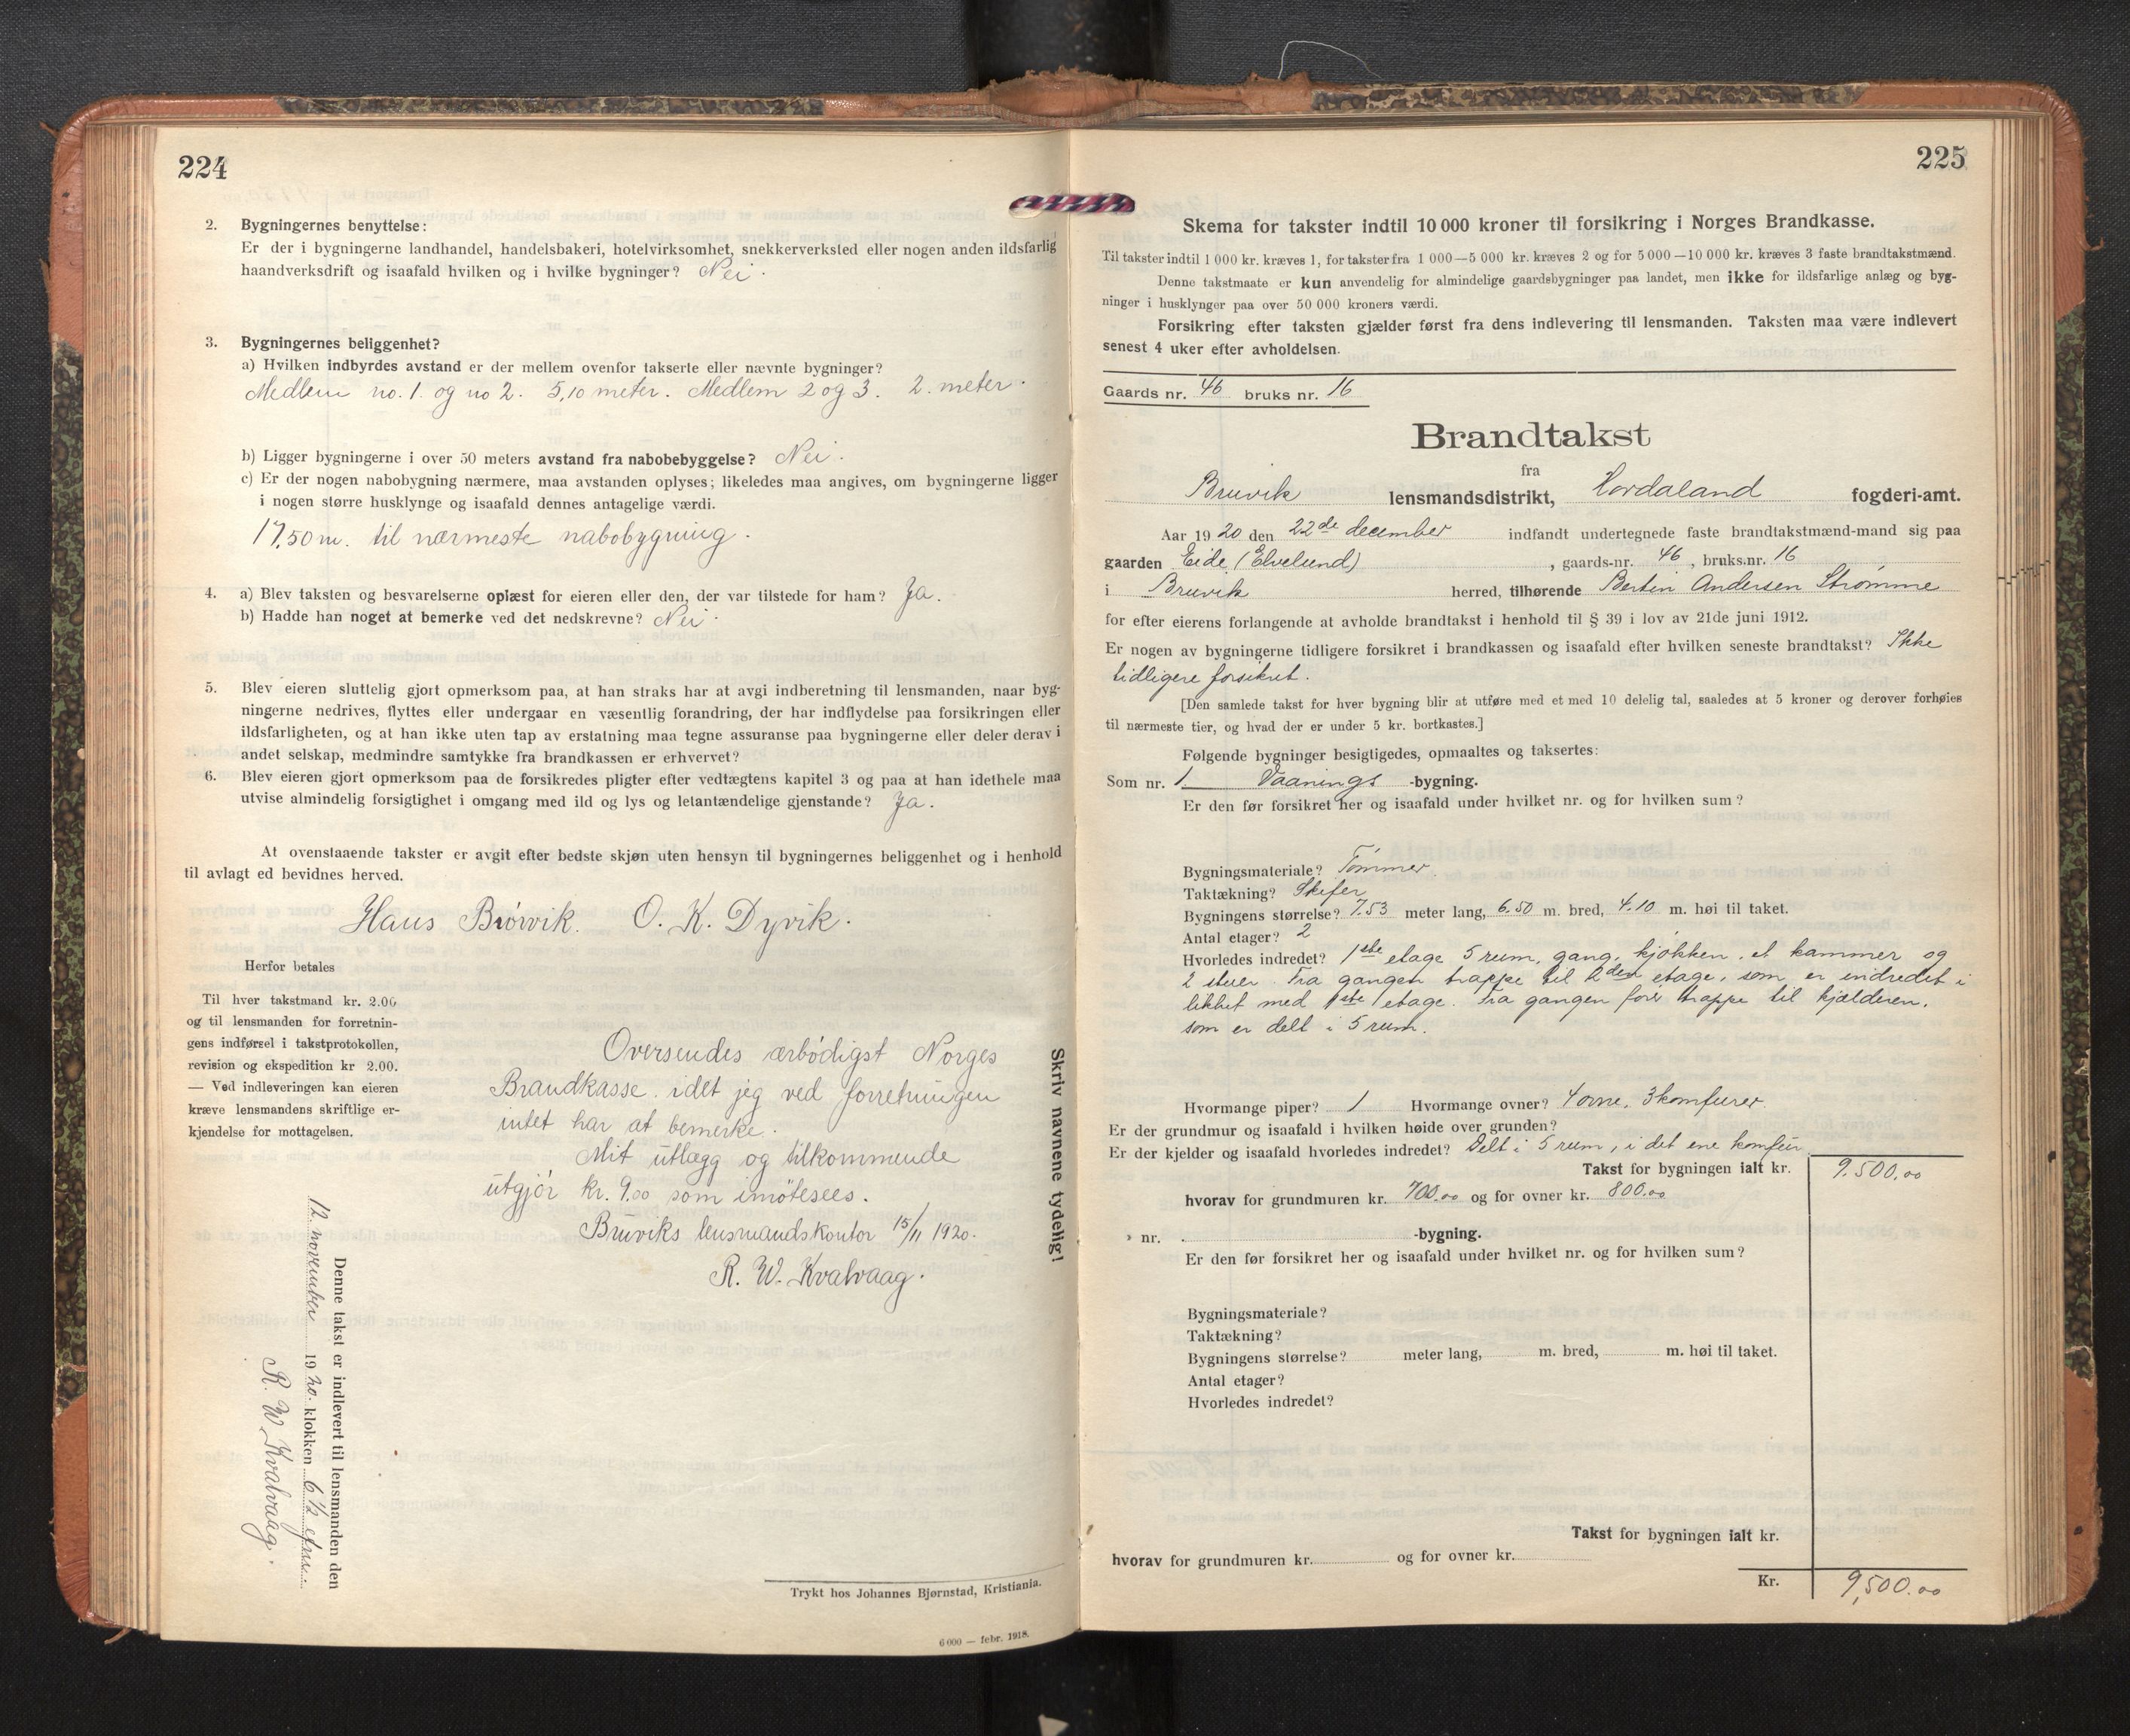 224
2. Bygningernes benyttelse:
Er der i bygningerne landhandel, handelsbakeri, hotelvirksomhet, snekkerverksted eller nogen anden ildsfarlig
haandverksdrift og isaafald hvilken og i hvilke bygninger? Nei.
3. Bygningernes beliggenhet?
a) Hvilken indbyrdes avstand er der mellem ovenfor takserte eller nævnte bygninger?
Medlem no. 1. og no 2. 5,10 meter. Medlem 2 og 3. 2. meter.
b) Ligger bygningerne i over 50 meters avstand fra nabobebyggelse? Nei.
c) Er der nogen nabobygning nærmere, maa avstanden oplyses; likeledes maa angives, om bygningerne ligger
i nogen større husklynge og isaafald dennes antagelige værdi.
17.50 m. til nærmeste nabobygning.
4. a) Blev taksten og besvarelserne oplæst for eieren eller den, der var tilstede for ham? Ja.
b) Hadde han noget at bemerke ved det nedskrevne? Nei.
5. Blev eieren sluttelig gjort opmerksom paa, at han straks har at avgi indberetning til lensmanden, naar byg-
ningerne nedrives, flyttes eller undergaar en væsentlig forandring, der har indflydelse paa forsikringen eller
ildsfarligheten, og at han ikke uten tap av erstatning maa tegne assuranse paa bygningerne eller deler derav i
andet selskap, medmindre samtykke fra brandkassen er erhvervet?
6. Blev eieren gjort opmerksom paa de forsikredes pligter efter vedtægtens kapitel 3 og paa at han idethele maa
utvise almindelig forsigtighet i omgang med ild og lys og letantændelige gjenstande? Ja.
At ovenstaaende takster er avgit efter bedste skjøn uten hensyn til bygningernes beliggenhet og i henhold
til avlagt ed bevidnes herved.
Haus Brøvik. O. K. Dyvik.
Herfor betales
Til hver takstmand kr. 2.00
og til lensmanden for forretnin-
gens indførsel i takstprotokollen,
revision og ekspedition kr 2.00.
— Ved indleveringen kan eieren
kræve lensmandens skriftlige er-
kjendelse for mottagelsen.
Oversendes ærbødigst Norges
Brandkasse idet jeg ved forretningen
intet har at bemerke.
Mit utlægg og tilkommende
utgjør kr. 9.00 som imøtesees.
Bruviks lensmandskontor 15/11 1920.
R. W. Kvalvaag.
Skriv navnene tydelig!
Denne takst er indlevert til lensmanden den
12. november 1920. klokken 6 1/2 efm.
R. W. Kvalvaag.
Trykt hos Johannes Bjørnstad, Kristiania.
6 000 — febr. 1918.
225
Skema for takster indtil 10 000 kroner til forsikring i Norges Brandkasse.
Til takster indtil 1 000 kr. kræves 1, for takster fra 1 000—5 000 kr. kræves 2 og for 5 000—10 000 kr. kræves 3 faste brandtakstmænd.
Denne takstmaate er kun anvendelig for almindelige gaardsbygninger paa landet, men ikke for ildsfarlige anlæg og byg-
ninger i husklynger paa over 50 000 kroners værdi.
Forsikring efter taksten gjælder først fra dens indlevering til lensmanden. Taksten maa være indlevert
senest 4 uker efter avholdelsen.
Gaards nr. 46 bruks nr. 16
Brandtakst
fra
Bruvik lensmandsdistrikt, Hordaland fogderi-amt.
Aar 1920 den 22de december indfandt undertegnede faste brandtakstmænd-mand sig paa
gaarden Eide (Elvelund), gaards-nr. 46, bruks.nr. 16
i Bruvik herred, tilhørende Bertin Andersen Strømme
for efter eierens forlangende at avholde brandtakst i henhold til § 39 i lov av 21de juni 1912.
Er nogen av bygningerne tidligere forsikret i brandkassen og isaafald efter hvilken seneste brandtakst? Ikke
tidligere forsikret.
[Den samlede takst for hver bygning blir at utføre med et med 10 delelig tal, saaledes at 5 kroner og derover forhøies
til nærmeste tier, og hvad der er under 5 kr. bortkastes.]
Følgende bygninger besigtigedes, opmaaltes og taksertes:
Som nr. 1. Vaanings -bygning.
Er den før forsikret her og isaafald under hvilket nr. og for hvilken sum?
Bygningsmateriale? Tømmer.
Taktækning? Skifer
Bygningens størrelse? 7.53 meter lang, 6.50 m. bred, 4.10 m. høi til taket.
Antal etager? 2
Hvorledes indredet? 1ste etage 5 rum, gang, kjøkken, et kammer og
2 stuer. Fra gangen trappe til 2den etage, som er indredet i
likhet med 1ste etage. Fra gangen fører trappe til kjælderen,
som er delt i 5 rum.
Hvormange piper? 1 Hvormange ovner? 4 ovne, 3 komfurer
Er der grundmur og isaafald i hvilken høide over grunden?
Er der kjelder og isaafald hvorledes indredet? Delt i 5 rum, i det ene komfur
Takst for bygningen ialt kr. 9.500.00
hvorav for grundmuren kr. 700.00 og for ovner kr. 800.00
» nr. -bygning.
Er den før forsikret her og isaafald under hvilket nr. og for hvilken sum?
Bygningsmateriale?
Taktækning?
Bygningens størrelse? meter lang, m. bred, m. høi til taket.
Antal etager?
Hvorledes indredet?
Takst for bygningen ialt kr.
hvorav for grundmuren kr. og for ovner kr.
Kr. 9,500.00